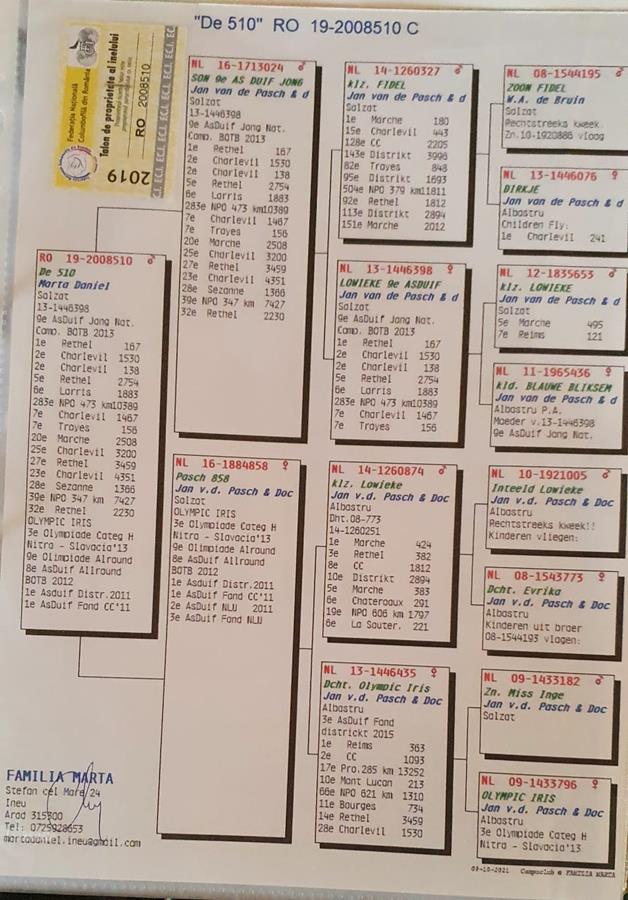 "De 510" RO 19-2008510 C
Federația Națională
Columbofilă din România
Talon de proprietate al inelului
RO 2008510
2019
RO 19-2008510 ♂
De 510
Marta Daniel
Salzat
13-1446398
9e AsDuif Jong Nat.
Camp. BOTB 2013
1e Rethel 167
2e Charlevil 1530
2e Charlevil 138
5e Rethel 2754
6e Lorris 1883
283e NPO 473 km10389
7e Charlevil 1467
7e Troyes 156
20e Marche 2508
25e Charlevil 3200
27e Rethel 3459
23e Charlevil 4351
28e Sezanne 1366
39e NPO 347 km 7427
32e Rethel 2230
OLYMPIC IRIS
3e Olympiade Categ H
Nitra - Slovacia'13
9e Olimpiade Allround
8e AsDuif Allround
BOTB 2012
1e Asduif Distr.2011
1e AsDuif Fond CC'11
NL 16-1713024 ♂
SON 9e AS DUIF JONG
Jan van de Pasch & d
Salzat
13-1446398
9e AsDuif Jong Nat.
Camp. BOTB 2013
1e Rethel 167
2e Charlevil 1530
2e Charlevil 138
5e Rethel 2754
6e Lorris 1883
283e NPO 473 km10389
7e Charlevil 1467
7e Troyes 156
20e Marche 2508
25e Charlevil 3200
27e Rethel 3459
23e Charlevil 4351
28e Sezanne 1366
39e NPO 347 km 7427
32e Rethel 2230
NL 16-1884858 ♀
Pasch 858
Jan v.d. Pasch & Doc
Salzat
OLYMPIC IRIS
3e Olympiade Categ H
Nitra - Slovacia'13
9e Olimpiade Allround
8e AsDuif Allround
BOTB 2012
1e Asduif Distr.2011
1e AsDuif Fond CC'11
2e AsDuif NLU 2011
3e AsDuif Fond NLU
NL 14-1260327 ♂
klz. FIDEL
Jan van de Pasch & d
Salzat
1e Marche 180
15e Charlevil 443
128e CC 2205
143e Distrikt 3996
82e Troyes 848
95e Distrikt 1693
504e NPO 379 km11811
92e Rethel 1812
113e Distrikt 2894
151e Marche 2012
NL 13-1446398 ♀
LOWIEKE 9e ASDUIF
Jan van de Pasch & d
Salzat
9e AsDuif Jong Nat.
Camp. BOTB 2013
1e Rethel 167
2e Charlevil 1530
2e Charlevil 138
5e Rethel 2754
6e Lorris 1883
283e NPO 473 km10389
7e Charlevil 1467
7e Troyes 156
NL 14-1260874 ♂
klz. Lowieke
Jan v.d. Pasch & Doc
Albastru
Dht.08-773
14-1260251
1e Marche 424
3e Rethel 382
8e CC 1812
10e Distrikt 2894
5e Marche 383
6e Chateroaux 291
19e NPO 606 km 1797
6e La Souter. 221
NL 13-1446435 ♀
Dcht. Olympic Iris
Jan v.d. Pasch & Doc
Albastru
3e AsDuif Fond
districkt 2015
1e Reims 363
2e CC 1093
17e Pro.285 km 13252
10e Mont Lucon 213
66e NPO 621 km 1310
11e Bourges 734
14e Rethel 3459
28e Charlevil 1530
NL 08-1544195 ♂
ZOON FIDEL
W.A. de Bruin
Salzat
Rechtstreeks kweek
Zn.10-1920886 vloog
NL 13-1446076 ♀
DIRKJE
Jan van de Pasch & d
Albastru
Children Fly:
1e Charlevil 241
NL 12-1835653 ♂
klz. LOWIEKE
Jan van de Pasch & d
Salzat
5e Marche 495
7e Reims 121
NL 11-1965436 ♀
kld. BLAUWE BLIKSEM
Jan van de Pasch & d
Albastru P.A.
Moeder v.13-1446398
9e AsDuif Jong Nat.
NL 10-1921005 ♂
Inteeld Lowieke
Jan v.d. Pasch & Doc
Albastru
Rechtstreeks kweek!!
Kinderen vliegen:
NL 08-1543773 ♀
Dcht. Evrika
Jan v.d. Pasch & Doc
Albastru
Kinderen uit broer
08-1544193 vlogen:
NL 09-1433182 ♂
Zn. Miss Inge
Jan v.d. Pasch & Doc
Salzat
NL 09-1433796 ♀
OLYMPIC IRIS
Jan v.d. Pasch & Doc
Albastru
3e Olimpiade Categ H
Nitra - Slovacia'13
FAMILIA MARTA
Stefan cel Mare 24
Ineu
Arad 315300
Tel: 0725928653
martadaniel.ineu@gmail.com
09-10-2021 Compuclub © FAMILIA MARTA